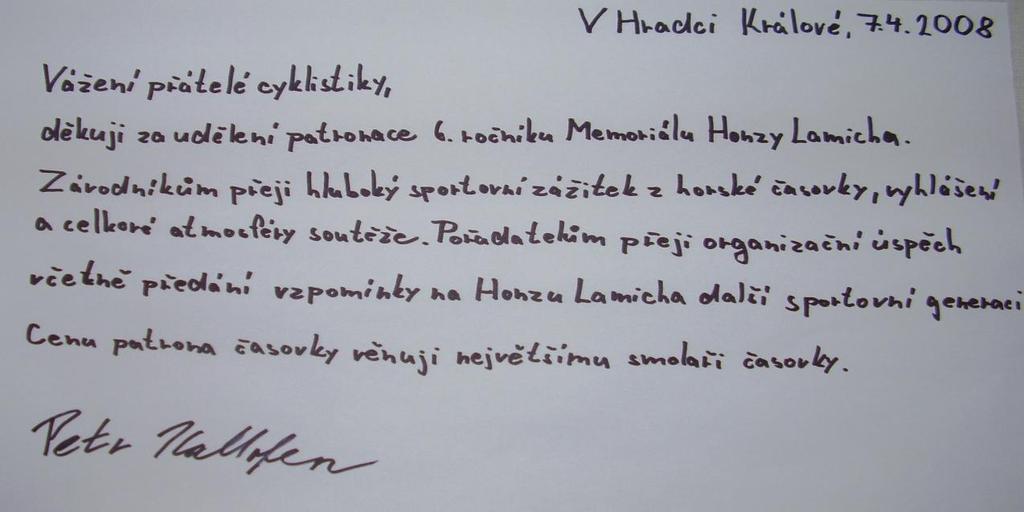 V Hradci Králové, 7.4.2008
Vážení přátelé cyklistiky,
děkuji za udělení patronace 6. ročníku Memoriálu Honzy Lamicha.
Závodníkům přeji hluboký sportovní zážitek z horské časovky, vyhlášení
a celkové atmosféry soutěže. Pořadatelům přeji organizační úspěch
včetně předání vzpomínky na Honzu Lamicha další sportovní generaci
Cenu patrona časovky věnuji největšímu smolaři časovky.
Petr Kallofen